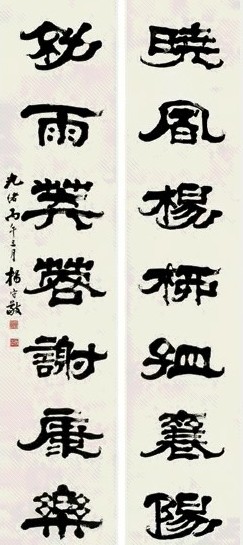 曉風楊柳孟襄陽
雨芙蓉謝康樂
光緒丙午三月 楊守敬